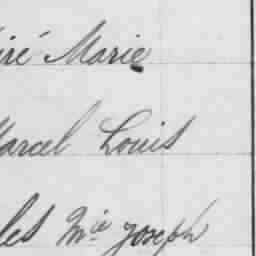 iré Marie
Marcel Louis
les Mie Joseph